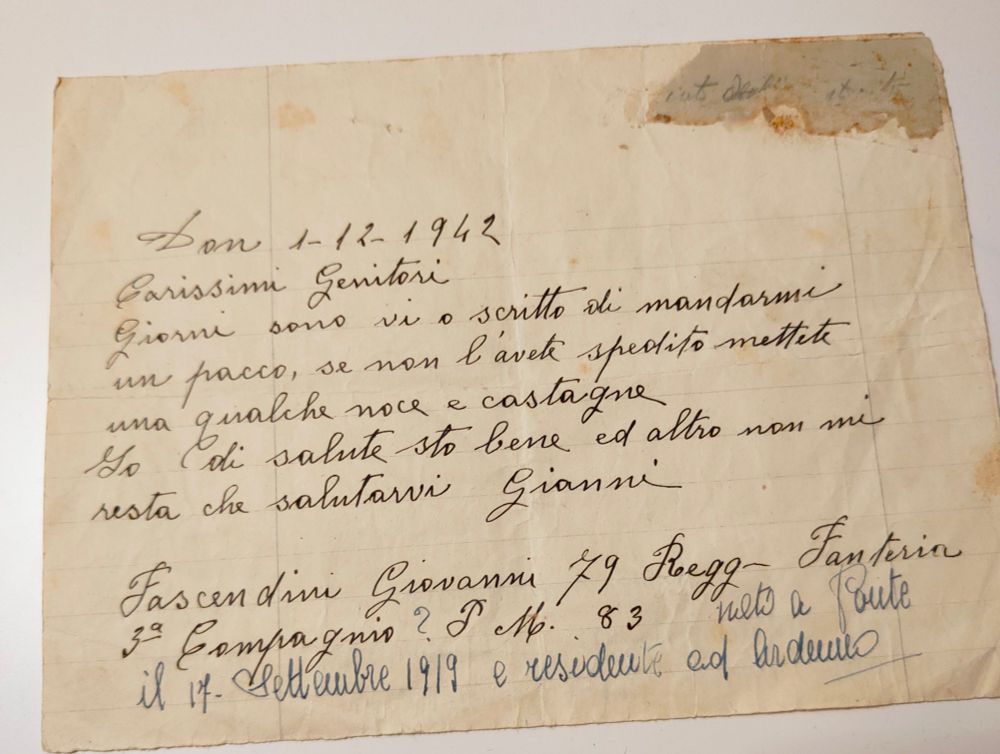 Don 1-12-1942
Carissimi Genitori
Giorni sono vi o scritto di mandarmi
un pacco, se non l'avete spedito mettete
una qualche noce e castagne
Io di salute sto bene ed altro non mi
resta che salutarvi Gianni
Fascendini Giovanni 79 Regg- Fanteria
3ª Compagnio ? P M. 83 nato a
il 17- Settembre 1919 e residente ad Ardenno